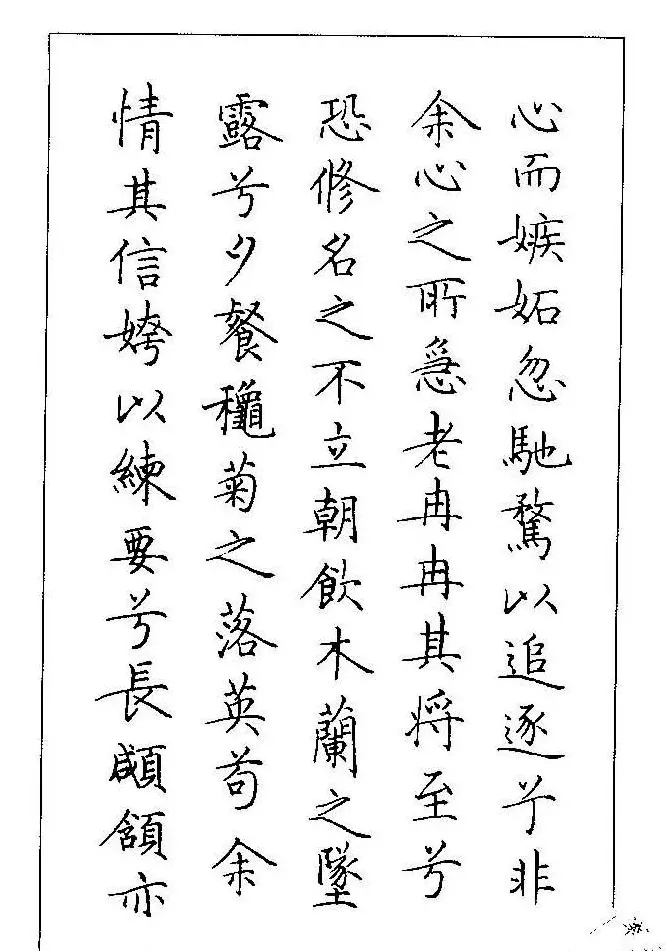 心而嫉妬忽馳騖以追逐兮非
余心之所急老冉冉其將至兮
恐修名之不立朝飲木蘭之墜
露兮夕餐穐菊之落英苟余
情其信姱以練要兮長顑頷亦